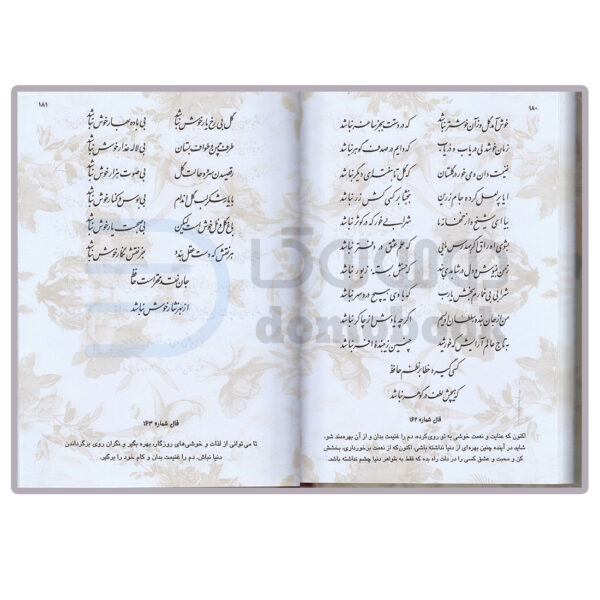 ۱۸۰
خوش آمد گل وز آن خوشتر نباشد
که در دستت بجز ساغر نباشد
زمان خوشدلی دریاب و دریاب
که دایم در صدف گوهر نباشد
غنیمت دان و می خور در گلستان
که گل تا هفته‌ای دیگر نباشد
ایا پر لعل کرده جام زرین
ببخشا بر کسی کش زر نباشد
بیا ای شیخ و از خمخانه ما
شرابی خور که در کوثر نباشد
بشوی اوراق اگر همدرس مایی
که علم عشق در دفتر نباشد
ز من بنیوش و دل در شاهدی بند
که حسنش بسته زیور نباشد
شرابی بی خمارم بخش یارب
که با وی هیچ درد سر نباشد
من از جان بنده سلطان اویسم
اگر چه یادش از چاکر نباشد
به تاج عالم آرایش که خورشید
چنین زیبنده افسر نباشد
کسی گیرد خطا بر نظم حافظ
که هیچش لطف در گوهر نباشد
فال شماره ۱۶۲
اکنون که عنایت و نعمت خوشی به تو روی‌کرده، دم را غنیمت بدان و از آن بهره‌مند شو،
شاید در آینده چنین بهره‌ای از دنیا نداشته باشی. اکنون‌که از نعمت برخورداری، بخشش
کن و محبت و عشق کسی را در دلت راه بده که فقط به ظواهر دنیا چشم نداشته باشد.
۱۸۱
گل بی رخ یار خوش نباشد
بی باده بهار خوش نباشد
طرف چمن و طواف بستان
بی لاله عذار خوش نباشد
رقصیدن سرو و حالت گل
بی صوت هزار خوش نباشد
با یار شکر لب گل اندام
بی بوس و کنار خوش نباشد
باغ گل و مل خوش است لیکن
بی صحبت یار خوش نباشد
هر نقش که دست عقل بندد
جز نقش نگار خوش نباشد
جان نقد محقر است حافظ
از بهر نثار خوش نباشد
فال شماره ۱۶۳
تا می‌توانی از لذات و خوشی‌های روزگار، بهره بگیر و نگران روی برگرداندن
دنیا نباش. دم را غنیمت بدان و کام خود را برگیر.